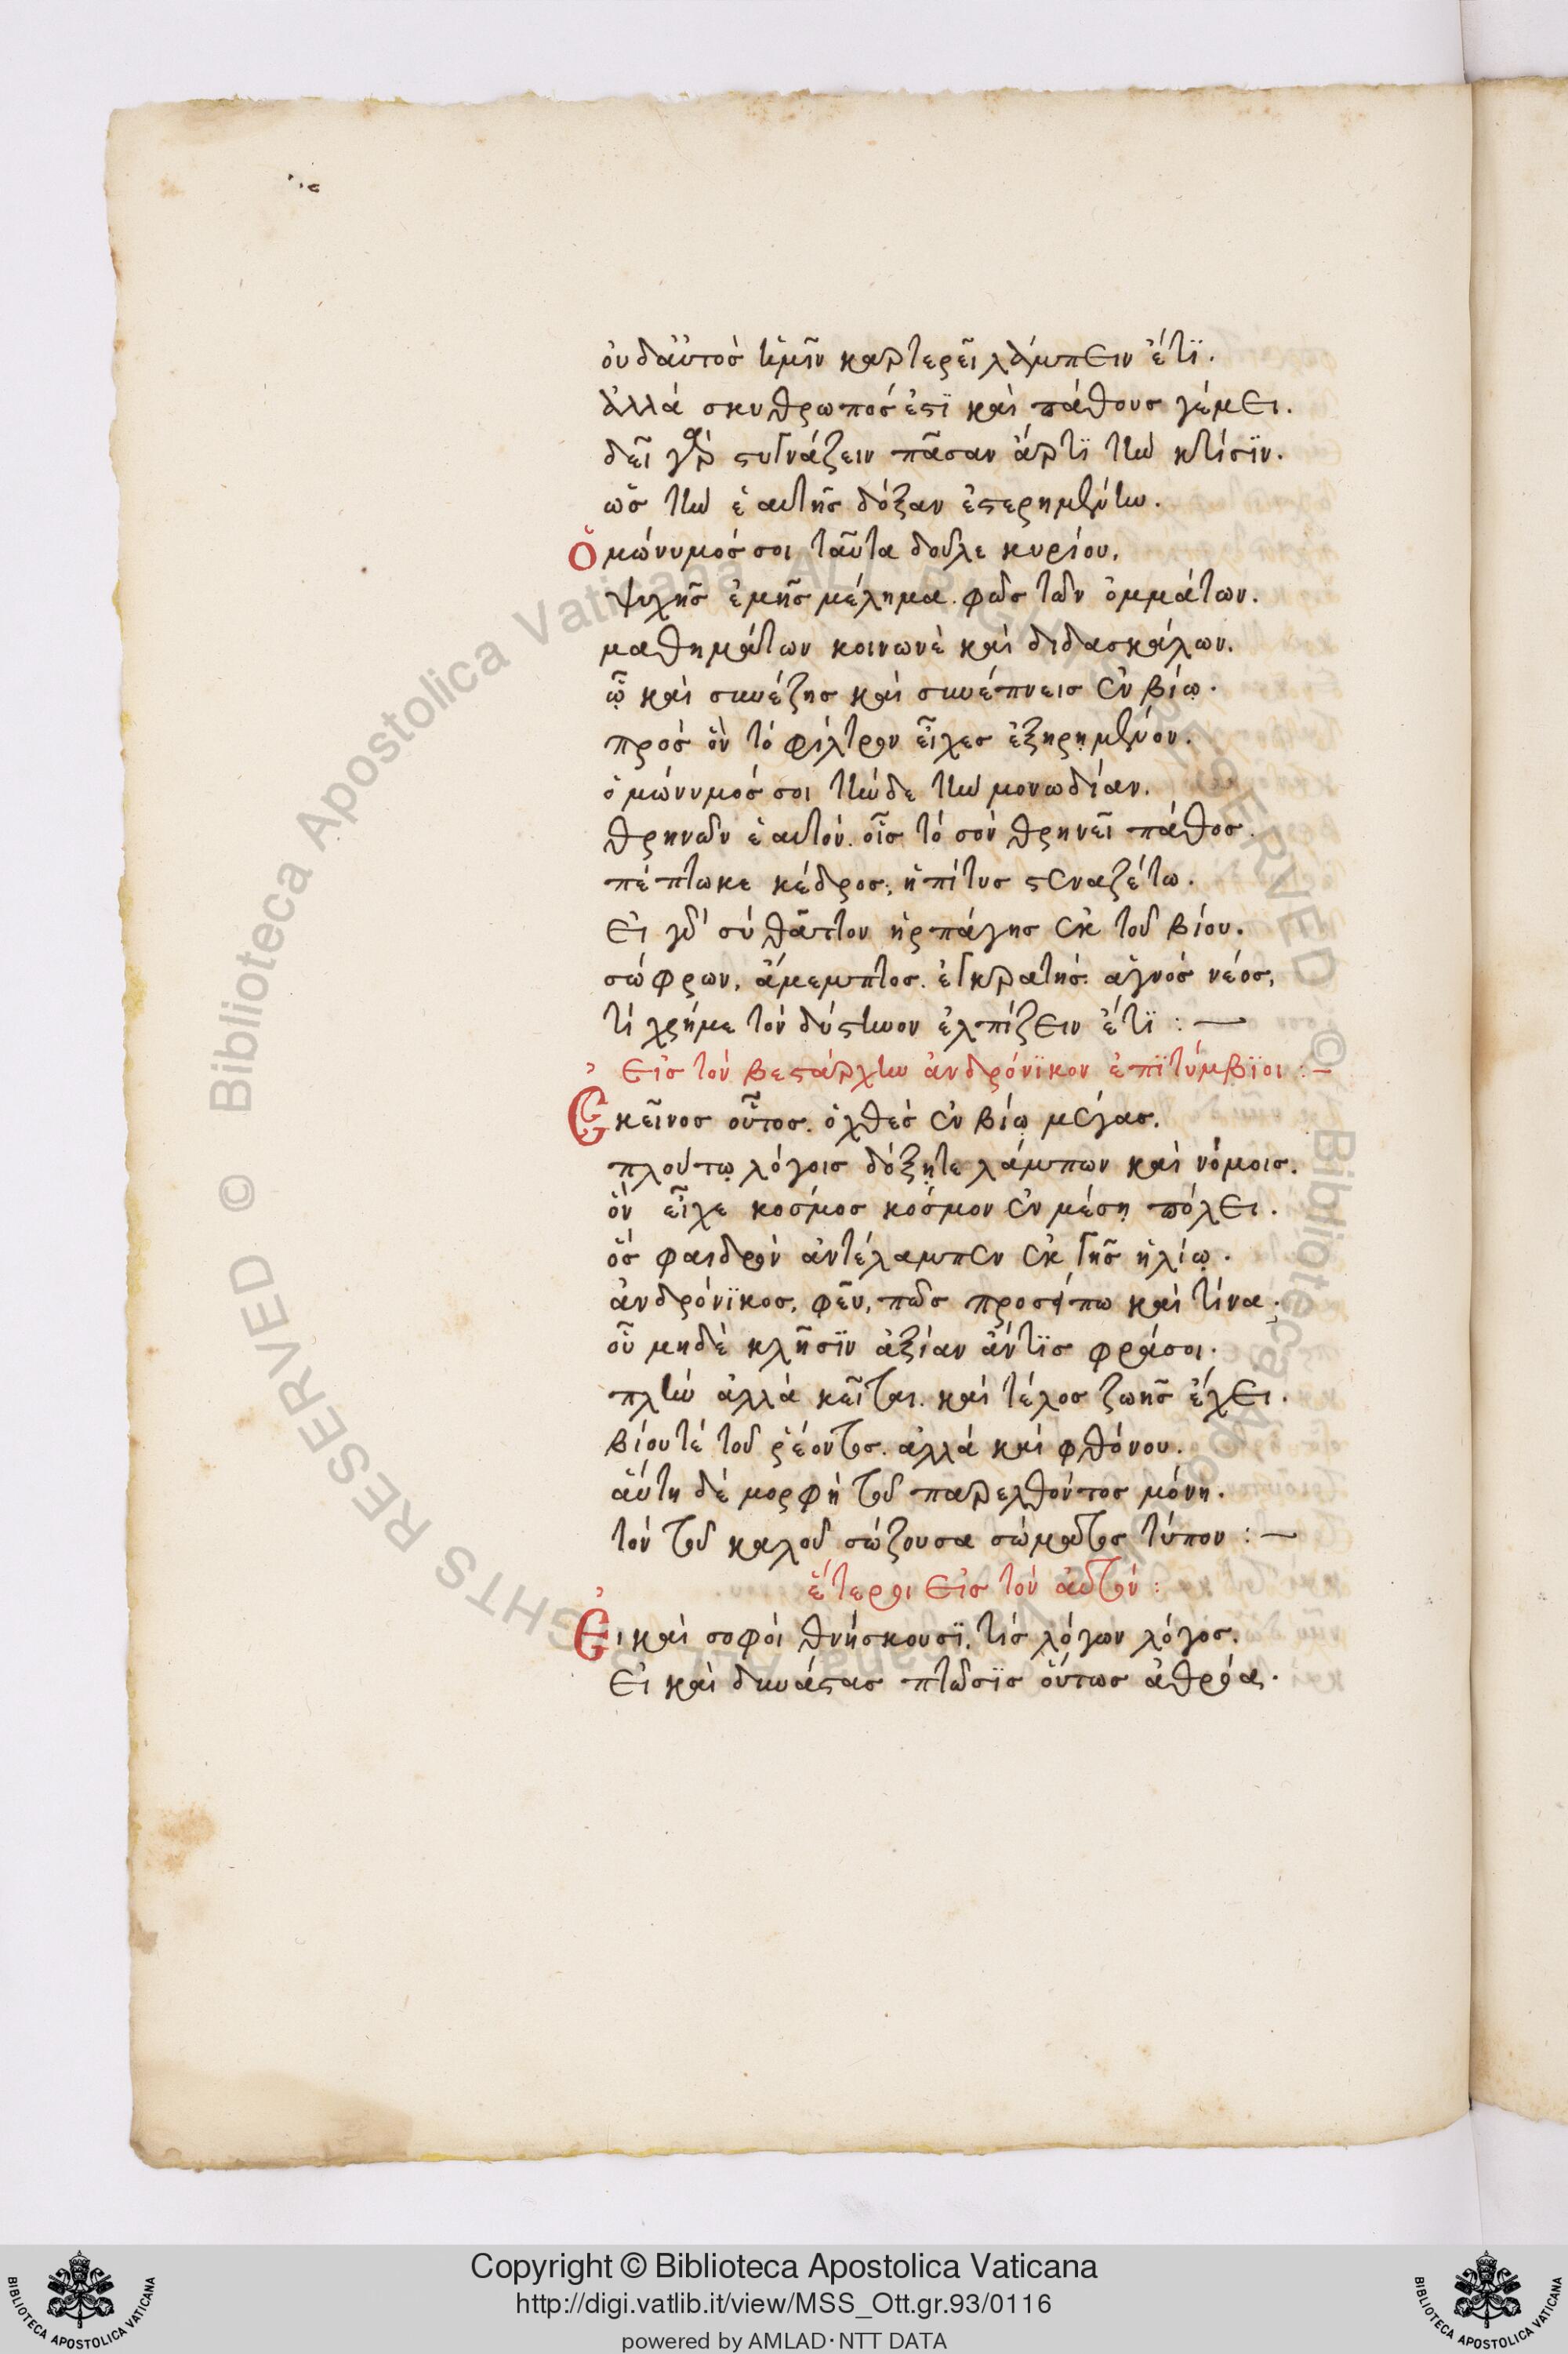 οὐδ' αὐτὸς ἡμῖν καρτερεῖ λάμπειν ἔτϊ.
ἀλλὰ σκυθρωπός ἐστϊ καὶ πάθους γέμει.
δεῖ γὰρ στυγνάζειν πᾶσαν ἄρτϊ τὴν κτίσϊν.
ὡς τὴν ἑαυτῆς δόξαν ἐστερημένην.
Ὁμώνυμός σοι ταῦτα δοῦλε κυρίου,
ψυχῆς ἐμῆς μέλημα. φῶς τῶν ὀμμάτων.
μαθημάτων κοινωνὲ καὶ διδασκάλων.
ᾧ καὶ συνέζης καὶ συνέπνεις ἐν βίῳ.
πρὸς ὃν τὸ φίλτρον εἶχες ἐξηρημένον.
ὁμώνυμός σοι τήνδε τὴν μονωδίαν.
θρηνῶν ἑαυτὸν. οἷς τὸ σὸν θρηνεῖ πάθος.
πέπτωκε κέδρος, ἡ πίτυς στεναζέτω.
Εἰ γὰρ σὺ θᾶττον ἡρπάγης ἐκ τοῦ βίου.
σώφρων, ἄμεμπτος. ἐγκρατὴς. ἁγνὸς νέος,
τί χρή με τὸν δύστηνον ἐλπίζειν ἔτϊ : —
Εἰς τὸν βεστάρχην ἀνδρόνϊκον ἐπϊτύμβϊοι : —
Ἐκεῖνος οὗτος. ὁ χθὲς ἐν βίῳ μέγας.
πλούτῳ λόγοις δόξῃ τε λάμπων καὶ νόμοις.
ὃν εἶχε κόσμος κόσμον ἐν μέσῃ πόλει.
ὃς φαιδρὸν ἀντέλαμπεν ἐκ γῆς ἡλίῳ.
ἀνδρόνϊκος, φεῦ, πῶς προσείπω καὶ τίνα.
οὗ μηδὲ κλῆσϊν ἀξίαν ἄν τϊς φράσοι.
πλὴν ἀλλὰ κεῖται. καὶ τέλος ζωῆς ἔχει.
βίου τὲ τοῦ ῥέοντος. ἀλλὰ καὶ φθόνου.
αὕτη δὲ μορφὴ τοῦ παρελθόντος μόνη.
τὸν τοῦ καλοῦ σώζουσα σώματος τύπον : —
ἕτεροι εἰς τὸν αὐτόν :
Εἰ καὶ σοφοὶ θνήσκουσϊ, τίς λόγων λόγος.
Εἰ καὶ δυνάστας πτῶσϊς οὕτως ἀθρόα.
Copyright © Biblioteca Apostolica Vaticana
http://digi.vatlib.it/view/MSS_Ott.gr.93/0116
powered by AMLAD·NTT DATA